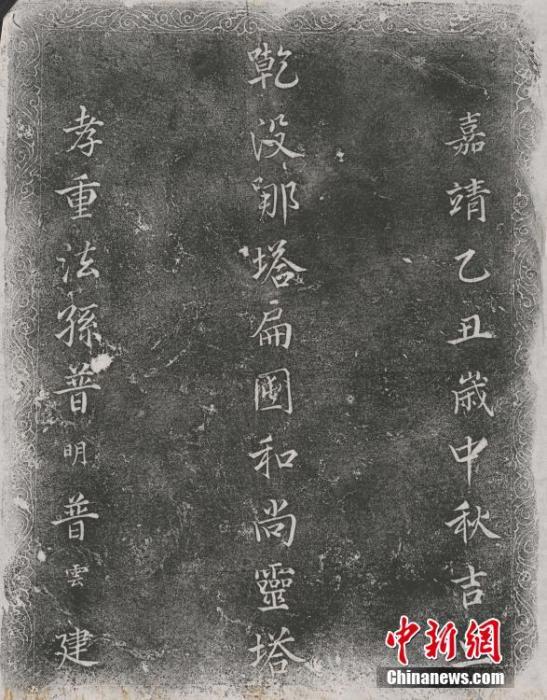 嘉靖乙丑歲中秋吉
乾没那塔扁囤和尚靈塔
孝重法孫普明普雲建
中新网
Chinanews.com